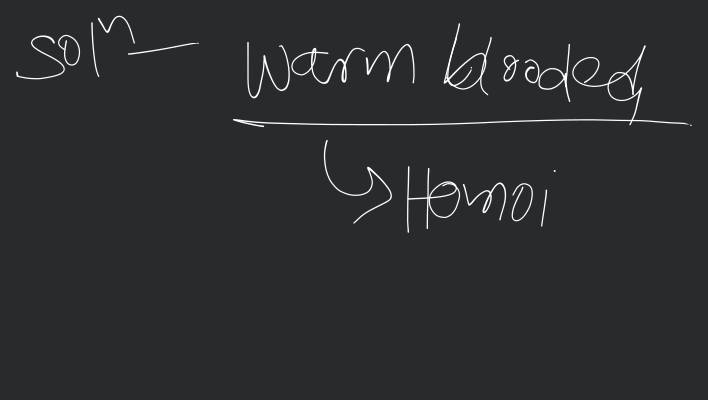 Solⁿ— Warm blooded
↳ Homoi